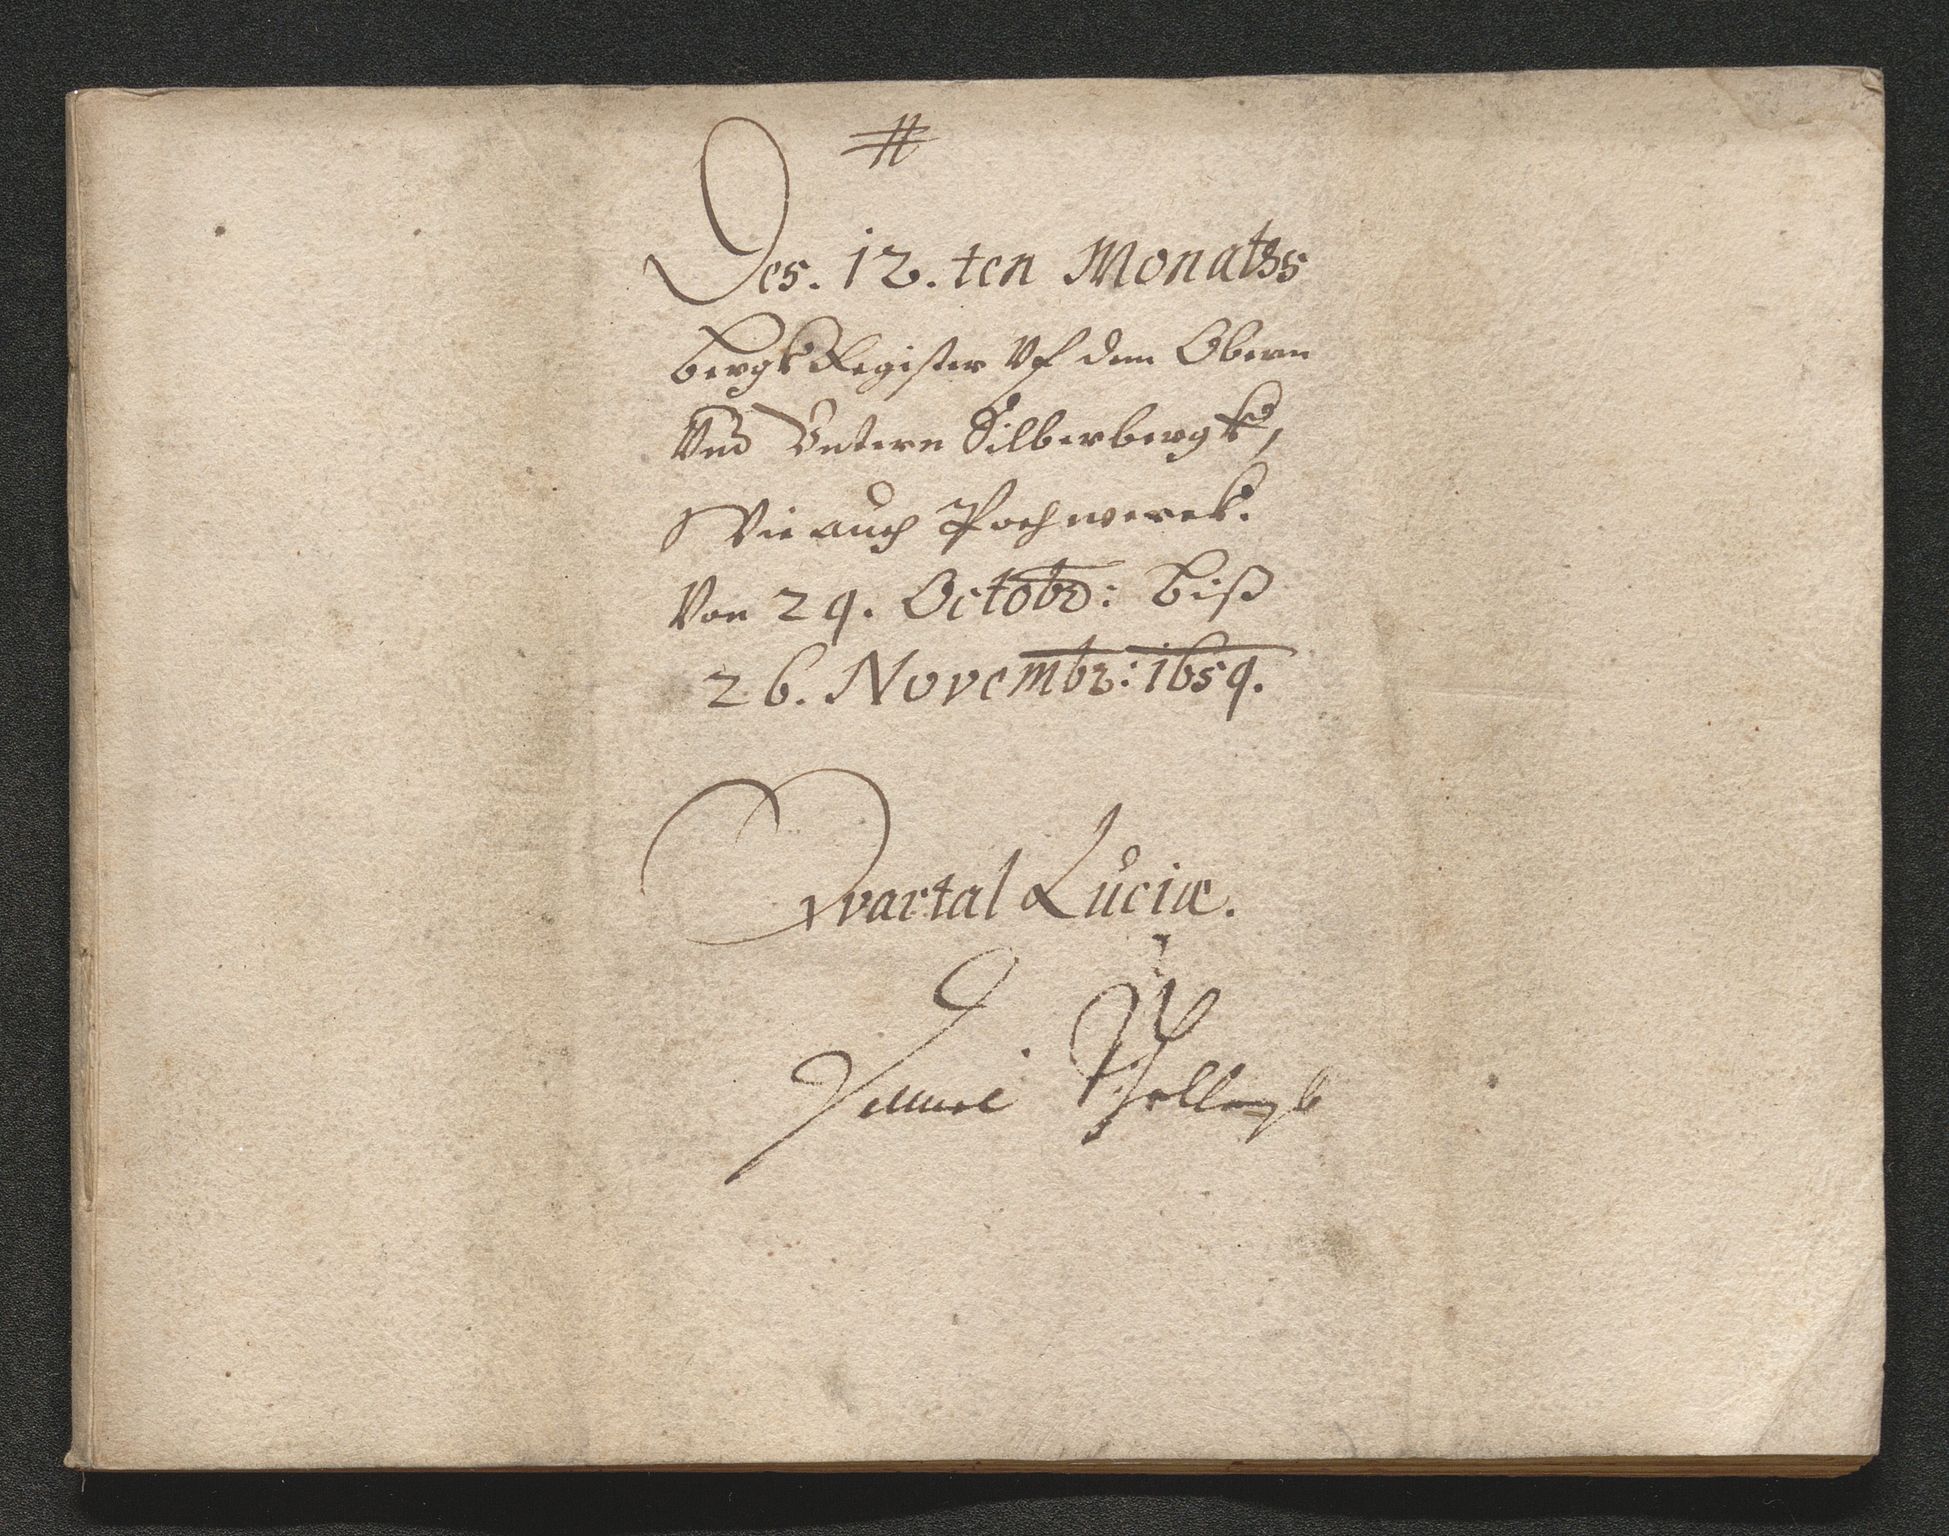 #
Des. 12. ten Monatss
bergk Register Vf dem Obern
Vnd Vntern Silberbergk,
Wie auch Pochwerck.
Von 29. Octobr: biß
26. Novembr: 1659.
Qvartal Luciæ.